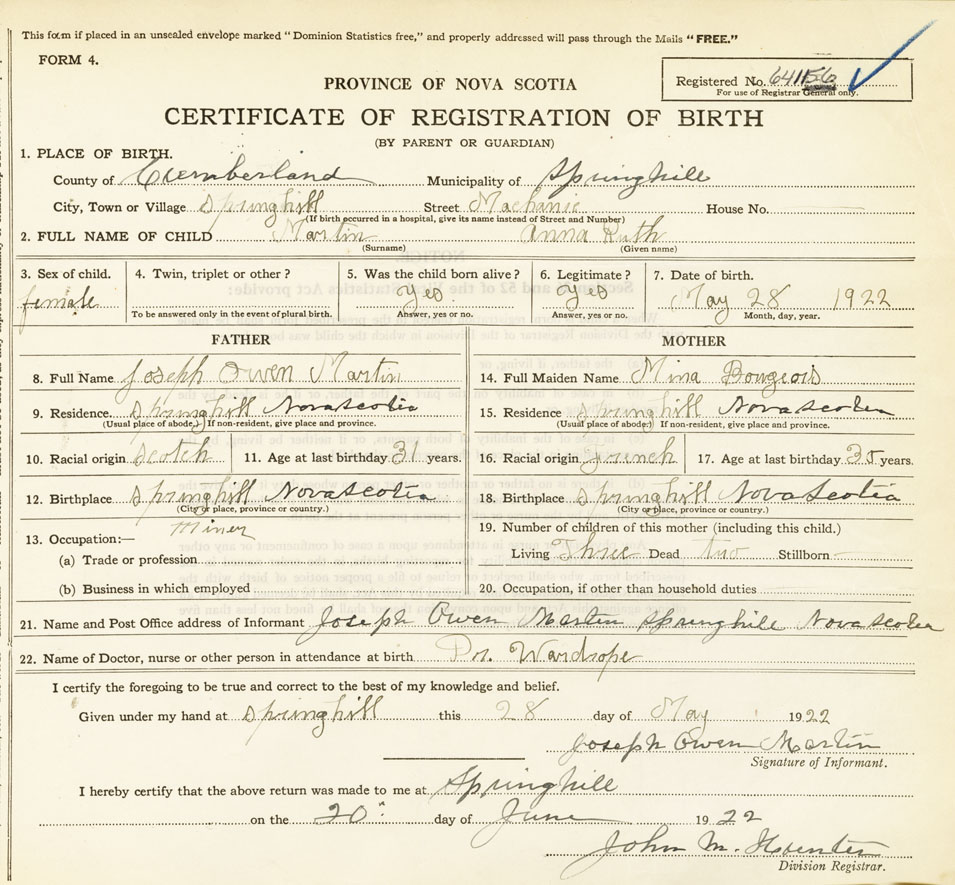 This form if placed in an unsealed envelope marked "Dominion Statistics free," and properly addressed will pass through the Mails "FREE."
FORM 4.
PROVINCE OF NOVA SCOTIA
Registered No. 641156
For use of Registrar General only.
CERTIFICATE OF REGISTRATION OF BIRTH
(BY PARENT OR GUARDIAN)
1. PLACE OF BIRTH.
County of Cumberland Municipality of Springhill
City, Town or Village Springhill Street Mechanic House No.
(If birth occurred in a hospital, give its name instead of Street and Number)
2. FULL NAME OF CHILD Martin Anna Ruth
(Surname) (Given name)
3. Sex of child. 4. Twin, triplet or other? 5. Was the child born alive? 6. Legitimate? 7. Date of birth.
female Yes Yes May 28 1922
To be answered only in the event of plural birth. Answer, yes or no. Answer, yes or no. Month, day, year.
FATHER MOTHER
8. Full Name Joseph Owen Martin 14. Full Maiden Name Mina Bourgeois
9. Residence. Springhill Nova Scotia 15. Residence Springhill Nova Scotia
(Usual place of abode.) If non-resident, give place and province. (Usual place of abode.) If non-resident, give place and province.
10. Racial origin Scotch 11. Age at last birthday 31 years. 16. Racial origin French 17. Age at last birthday 30 years.
12. Birthplace Springhill Nova Scotia 18. Birthplace Springhill Nova Scotia
(City or place, province or country.) (City or place, province or country.)
Miner
13. Occupation:— 19. Number of children of this mother (including this child.)
(a) Trade or profession Living Three Dead two Stillborn
(b) Business in which employed 20. Occupation, if other than household duties
21. Name and Post Office address of Informant Joseph Owen Martin Springhill Nova Scotia
22. Name of Doctor, nurse or other person in attendance at birth Dr. Wardrope
I certify the foregoing to be true and correct to the best of my knowledge and belief.
Given under my hand at Springhill this 28 day of May 1922
Joseph Owen Martin
Signature of Informant.
I hereby certify that the above return was made to me at Springhill
on the 20" day of June 1922
John M. Hunter
Division Registrar.